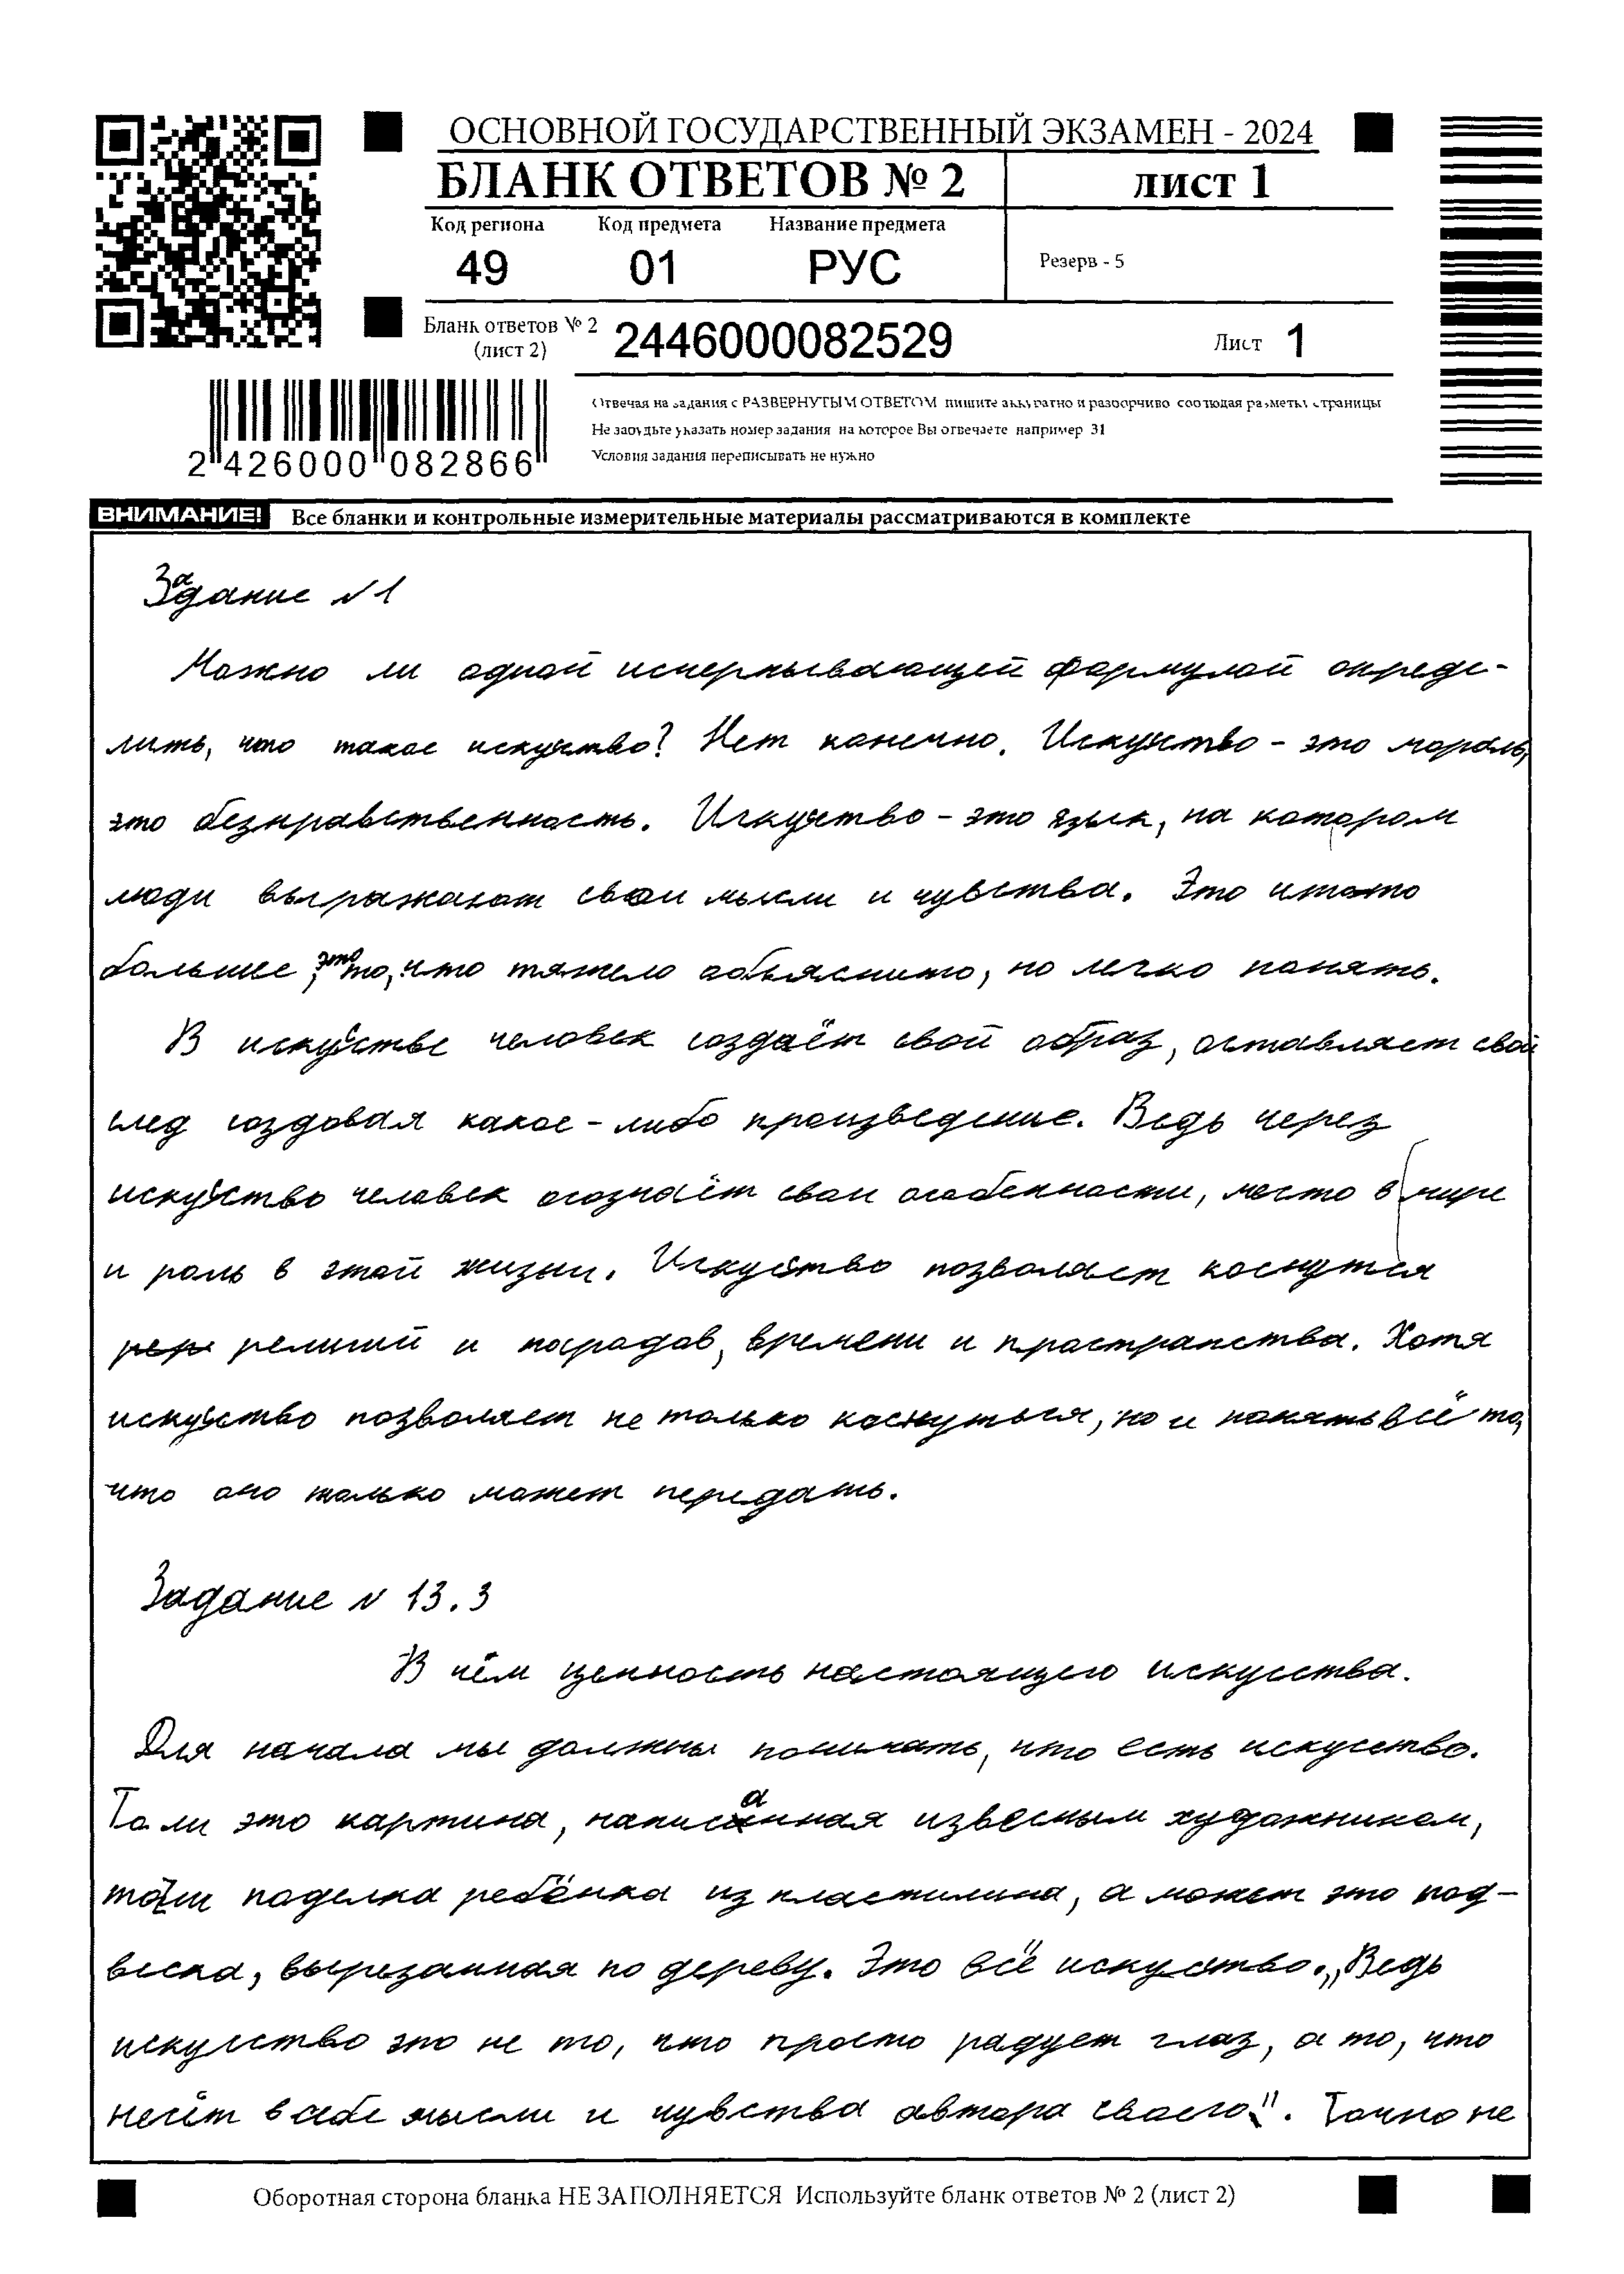 ОСНОВНОЙ ГОСУДАРСТВЕННЫЙ ЭКЗАМЕН - 2024
БЛАНК ОТВЕТОВ № 2
ЛИСТ 1
Код региона Код предмета Название предмета
49 01 РУС
Резерв - 5
Бланк ответов № 2
(лист 2)
2446000082529
Лист 1
2 426000 082866
Отвечая на задания с РАЗВЕРНУТЫМ ОТВЕТОМ пишите аккуратно и разборчиво соблюдая разметку страницы
Не забудьте указать номер задания на которое Вы отвечаете например 31
Условия задания переписывать не нужно
ВНИМАНИЕ! Все бланки и контрольные измерительные материалы рассматриваются в комплекте
Задание №1
Можно ли одной исперпывающей формулой опреде-
лить, что такое искуство? Нет конечно. Искуство - это мораль,
это безнравственность. Искуство - это язык, на котором
люди выражают свои мысли и чувства. Это
больше, это то, что тяжело объяснить, но легко понять.
В искустве человек создаёт свой образ, оставляет свой
след создовая какое-либо произведение. Ведь через
искуство человек осознаёт свои особенности, место в мире
и роль в этой жизни. Искуство позволяет коснутся
религий и народов, времени и пространства. Хотя
искуство позволяет не только коснуться, но и понять всё то,
что оно только может передать.
Задание № 13.3
В чём ценность настоящего искусства.
Для начала мы должны понимать, что есть искусство.
То ли это картина, написанная извесным художником,
то ли поделка ребёнка из пластилина, а может это под-
веска, вырезанная по дереву. Это всё искусство. „Ведь
искусство это не то, что просто радует глаз, а то, что
несёт в себе мысли и чувства автора своего". Точно не
Оборотная сторона бланка НЕ ЗАПОЛНЯЕТСЯ Используйте бланк ответов № 2 (лист 2)